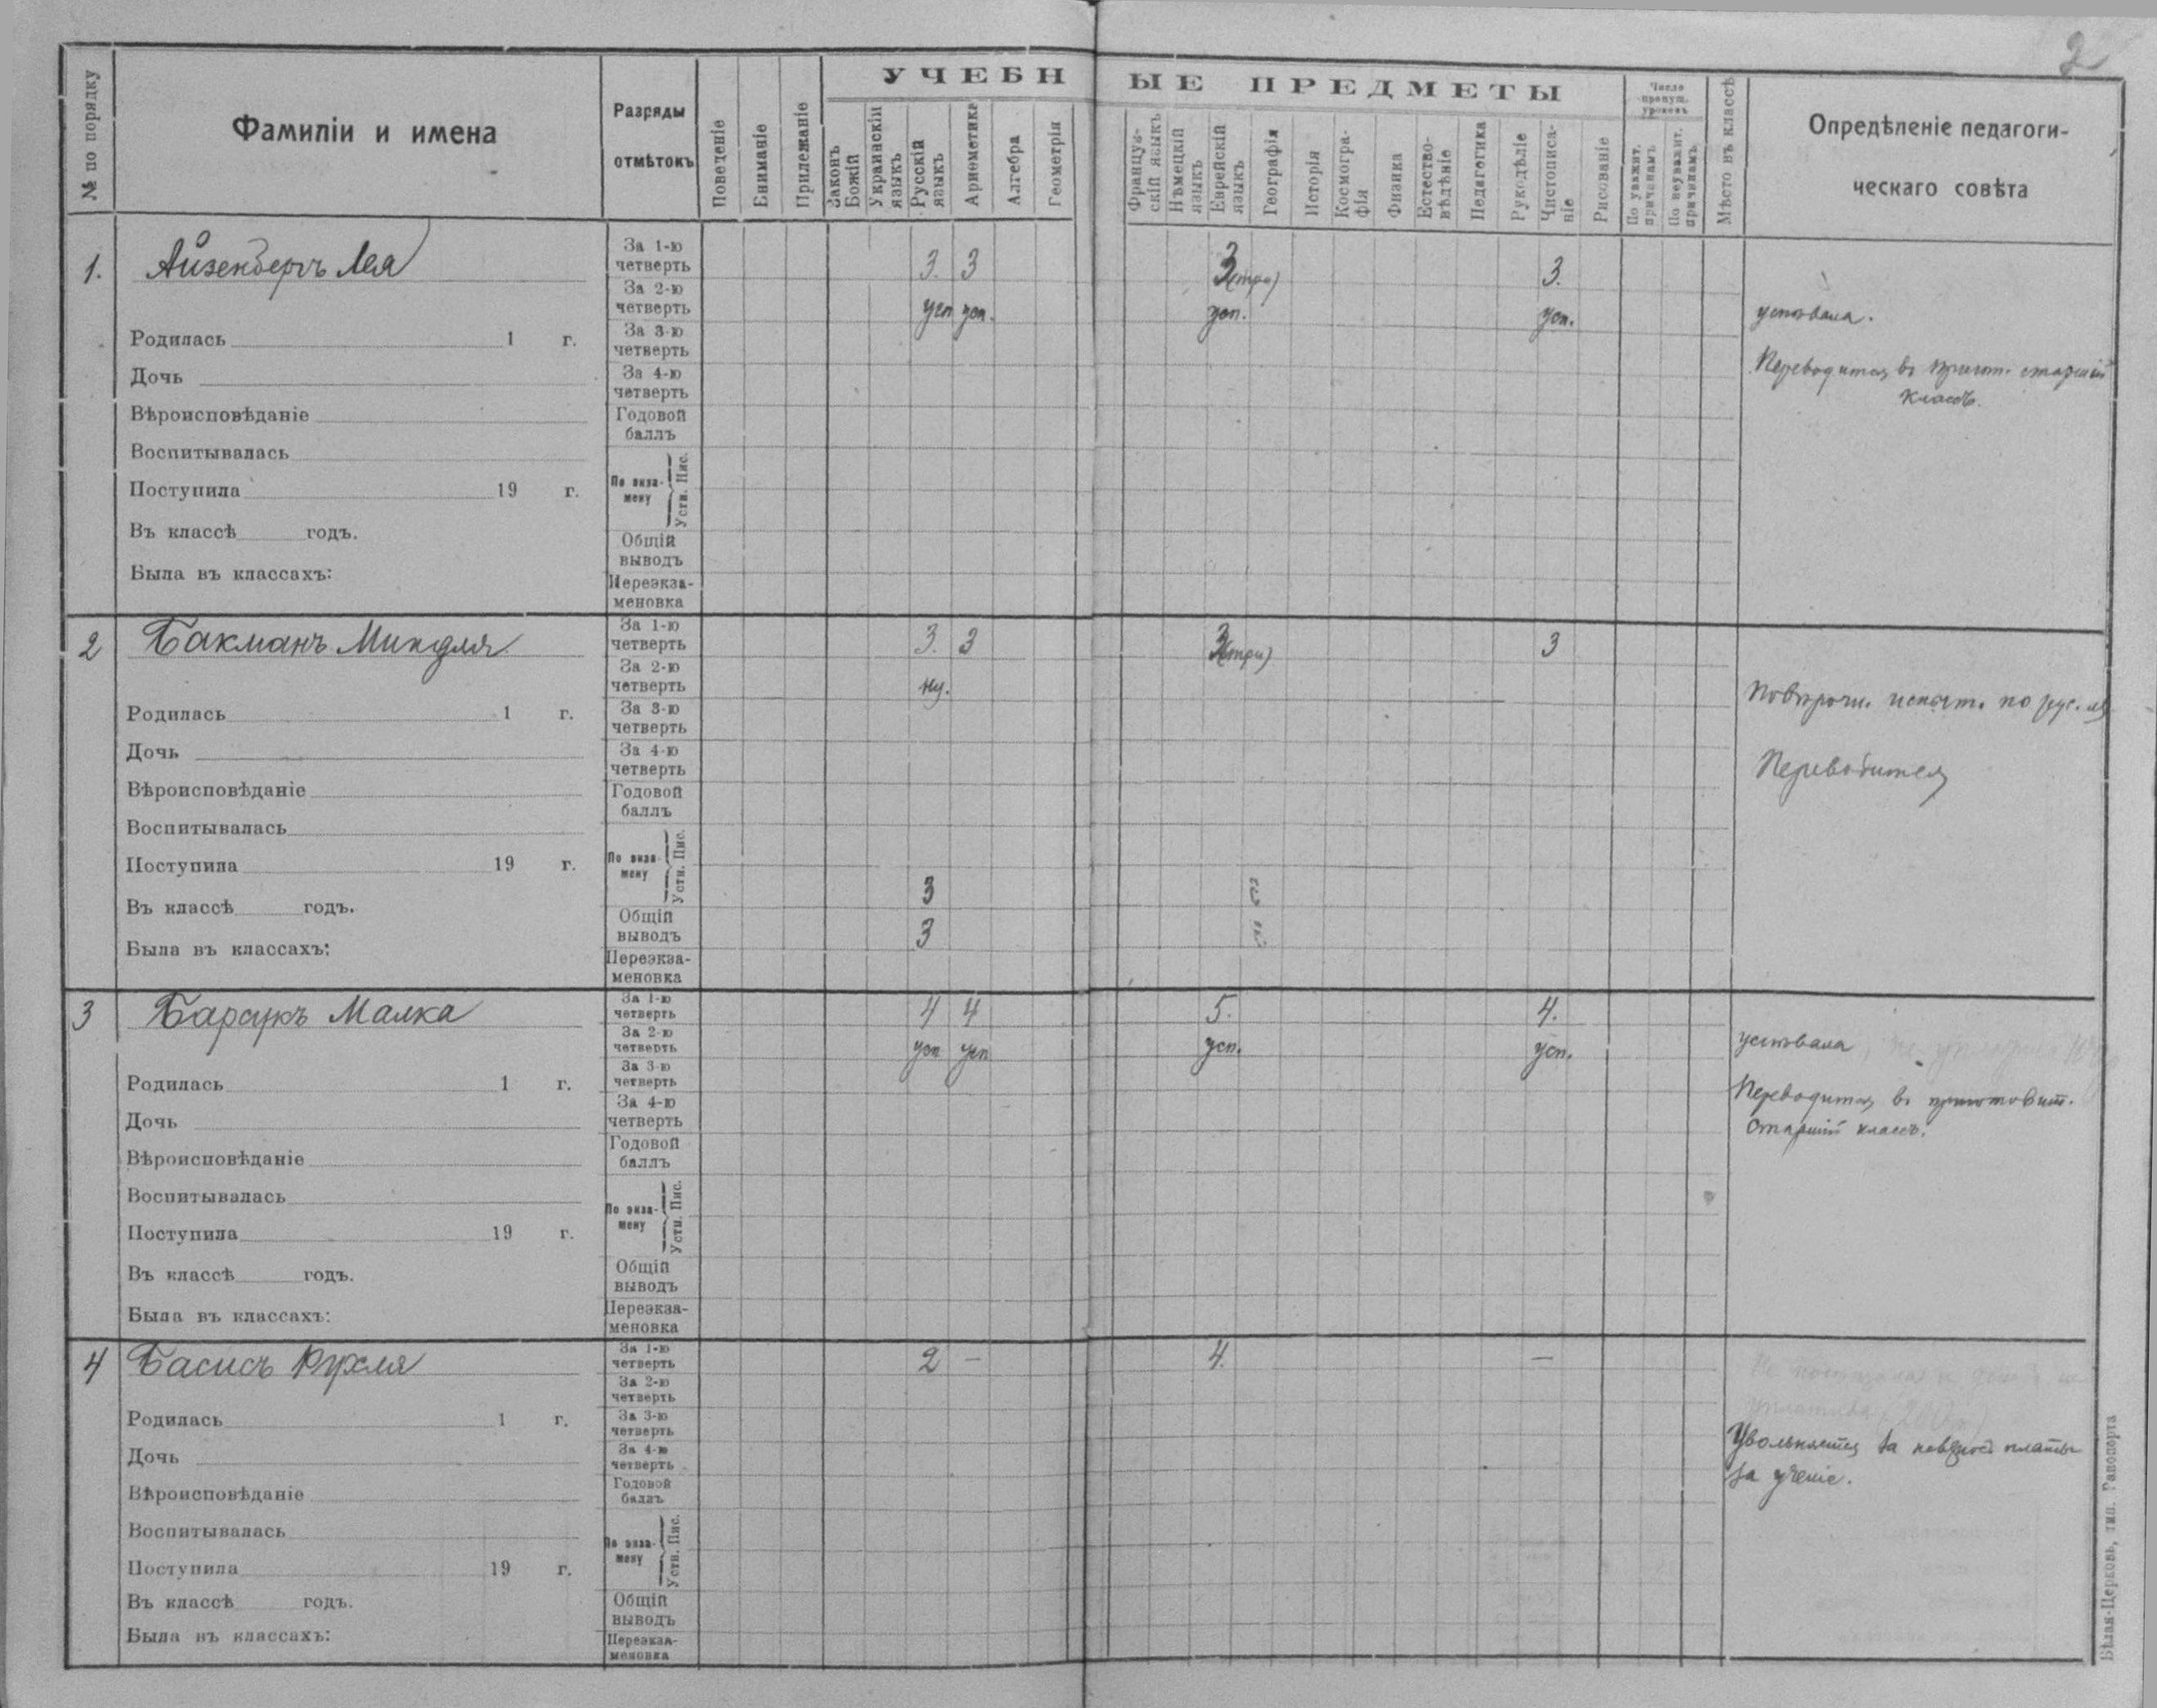 2
№ по порядку
Фамиліи и имена
Разряды
отмѣтокъ
Поведеніе
Вниманіе
Прилежаніе
УЧЕБНЫЕ ПРЕДМЕТЫ
Законъ Божій
Украинскій языкъ
Русскій языкъ
Ариѳметика
Алгебра
Геометрія
Француз-скій языкъ
Нѣмецкій языкъ
Еврейскій языкъ
Географія
Исторія
Космогра-фія
Физика
Естество-вѣдѣніе
Педагогика
Рукодѣліе
Чистописа-ніе
Рисованіе
Число пропущ. уроковъ
По уважит. причинамъ
По неуважит. причинамъ
Мѣсто въ классѣ
Опредѣленіе педагоги-
ческаго совѣта
1. Айзенбергъ Лея
Родилась 1 г.
Дочь
Вѣроисповѣданіе
Воспитывалась
Поступила 19 г.
Въ классѣ годъ.
Была въ классахъ:
За 1-ю четверть 3. 3 3 (три) 3.
За 2-ю четверть усп усп. усп. усп.
За 3-ю четверть
За 4-ю четверть
Годовой баллъ
По экза-мену Устн. Пис.
Общій выводъ
Переэкза-меновка
успѣвала.
Переводится въ пригот. старшій
классъ.
2 Бакманъ Миндля
Родилась 1 г.
Дочь
Вѣроисповѣданіе
Воспитывалась
Поступила 19 г.
Въ классѣ годъ.
Была въ классахъ:
За 1-ю четверть 3. 3 3 (три) 3
За 2-ю четверть ну.
За 3-ю четверть
За 4-ю четверть
Годовой баллъ
По экза-мену Устн. Пис. 3
Общій выводъ 3
Переэкза-меновка
Повѣрочн. испыт. по рус. яз
Переводится
3 Барсукъ Малка
Родилась 1 г.
Дочь
Вѣроисповѣданіе
Воспитывалась
Поступила 19 г.
Въ классѣ годъ.
Была въ классахъ:
За 1-ю четверть 4 4 5. 4.
За 2-ю четверть усп усп усп. усп.
За 3-ю четверть
За 4-ю четверть
Годовой баллъ
По экза-мену Устн. Пис.
Общій выводъ
Переэкза-меновка
успѣвала
Переводится въ приготовит.
старшій классъ.
4 Басисъ Рухля
Родилась 1 г.
Дочь
Вѣроисповѣданіе
Воспитывалась
Поступила 19 г.
Въ классѣ годъ.
Была въ классахъ:
За 1-ю четверть 2 — 4. —
За 2-ю четверть
За 3-ю четверть
За 4-ю четверть
Годовой баллъ
По экза-мену Устн. Пис.
Общій выводъ
Переэкза-меновка
Увольняется за невзносъ платы
за ученіе.
Бѣлая-Церковь, тип. Рапопорта